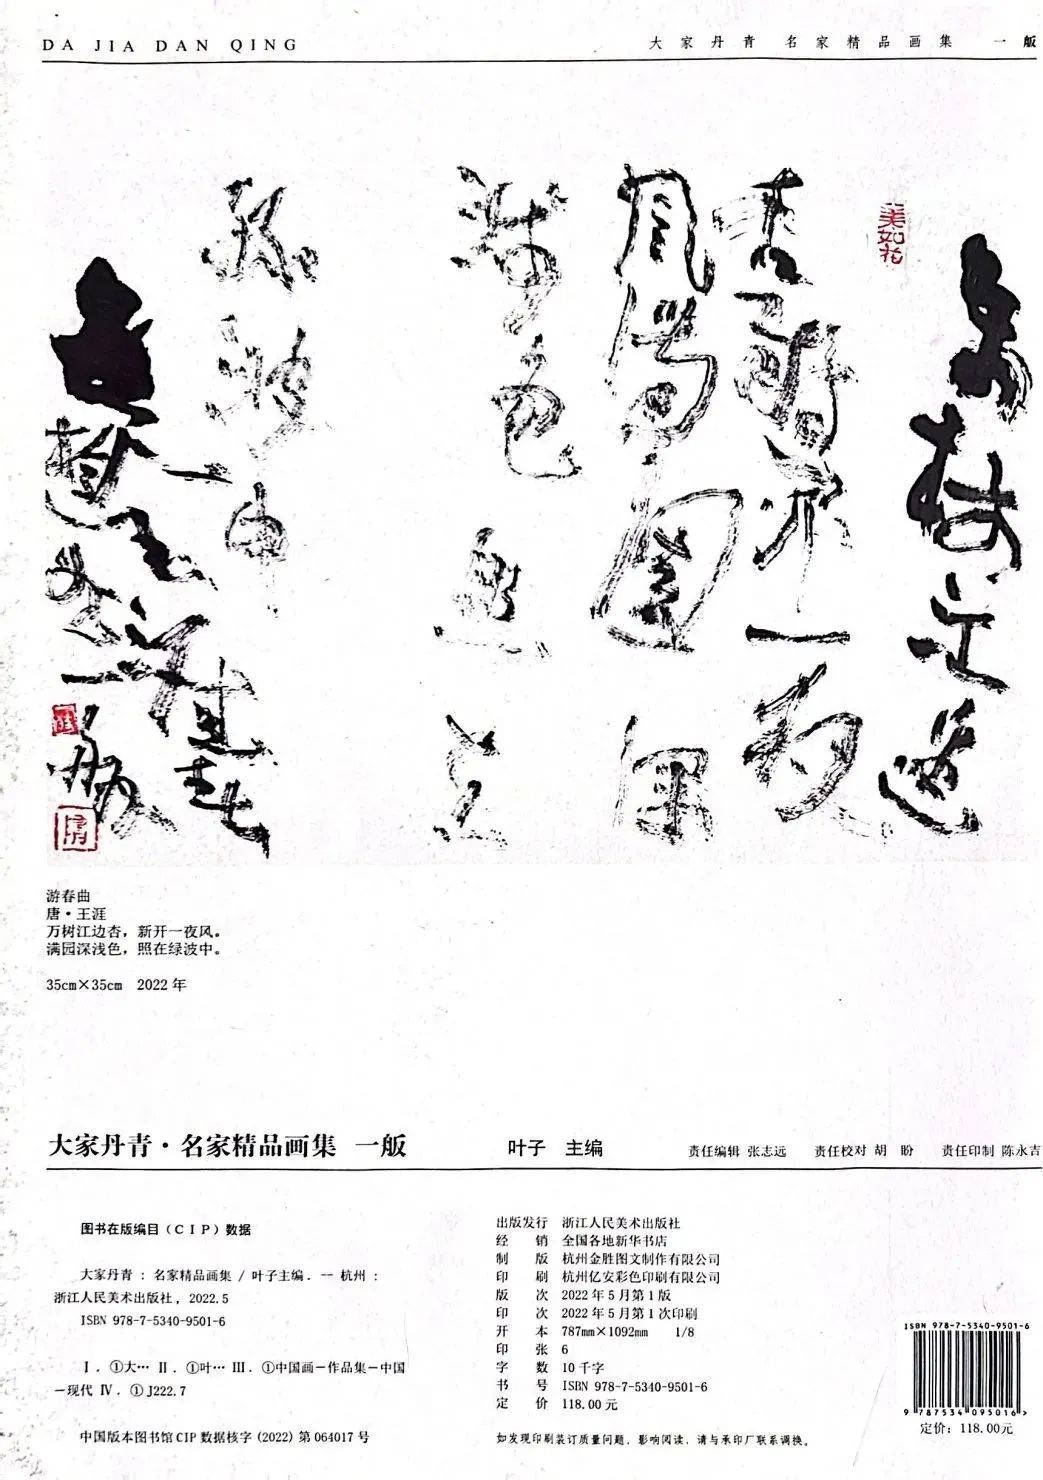 DA JIA DAN QING
大家丹青 名家精品画集 一舨
美如花
万树江边
杏新开一夜
风满园深
浅色照在
绿波中
游春曲
唐·王涯
万树江边杏，新开一夜风。
满园深浅色，照在绿波中。
35cm×35cm 2022 年
大家丹青·名家精品画集 一舨
叶子 主编
责任编辑 张志远 责任校对 胡 盼 责任印制 陈永吉
图书在版编目（CIP）数据
大家丹青 : 名家精品画集 / 叶子主编. -- 杭州 :
浙江人民美术出版社, 2022.5
ISBN 978-7-5340-9501-6
Ⅰ. ①大… Ⅱ. ①叶… Ⅲ. ①中国画—作品集—中国
—现代 Ⅳ. ①J222.7
中国版本图书馆CIP数据核字(2022)第064017号
出版发行 浙江人民美术出版社
经 销 全国各地新华书店
制 版 杭州金胜图文制作有限公司
印 刷 杭州亿安彩色印刷有限公司
版 次 2022年5月第1版
印 次 2022年5月第1次印刷
开 本 787mm×1092mm 1/8
印 张 6
字 数 10千字
书 号 ISBN 978-7-5340-9501-6
定 价 118.00元
如发现印刷装订质量问题，影响阅读，请与承印厂联系调换。
ISBN 978-7-5340-9501-6
9 787534 095016 >
定价：118.00元